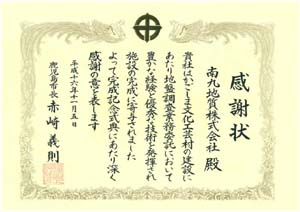 感謝状
南九地質株式会社 殿
貴社はかごしま文化工芸村の建設に
あたり地盤調査業務委託において
豊かな経験と優秀な技術を発揮され
施設の完成に寄与されました
よって完成記念式典にあたり深く
感謝の意を表します
平成十六年十一月五日
鹿児島市長 赤崎義則